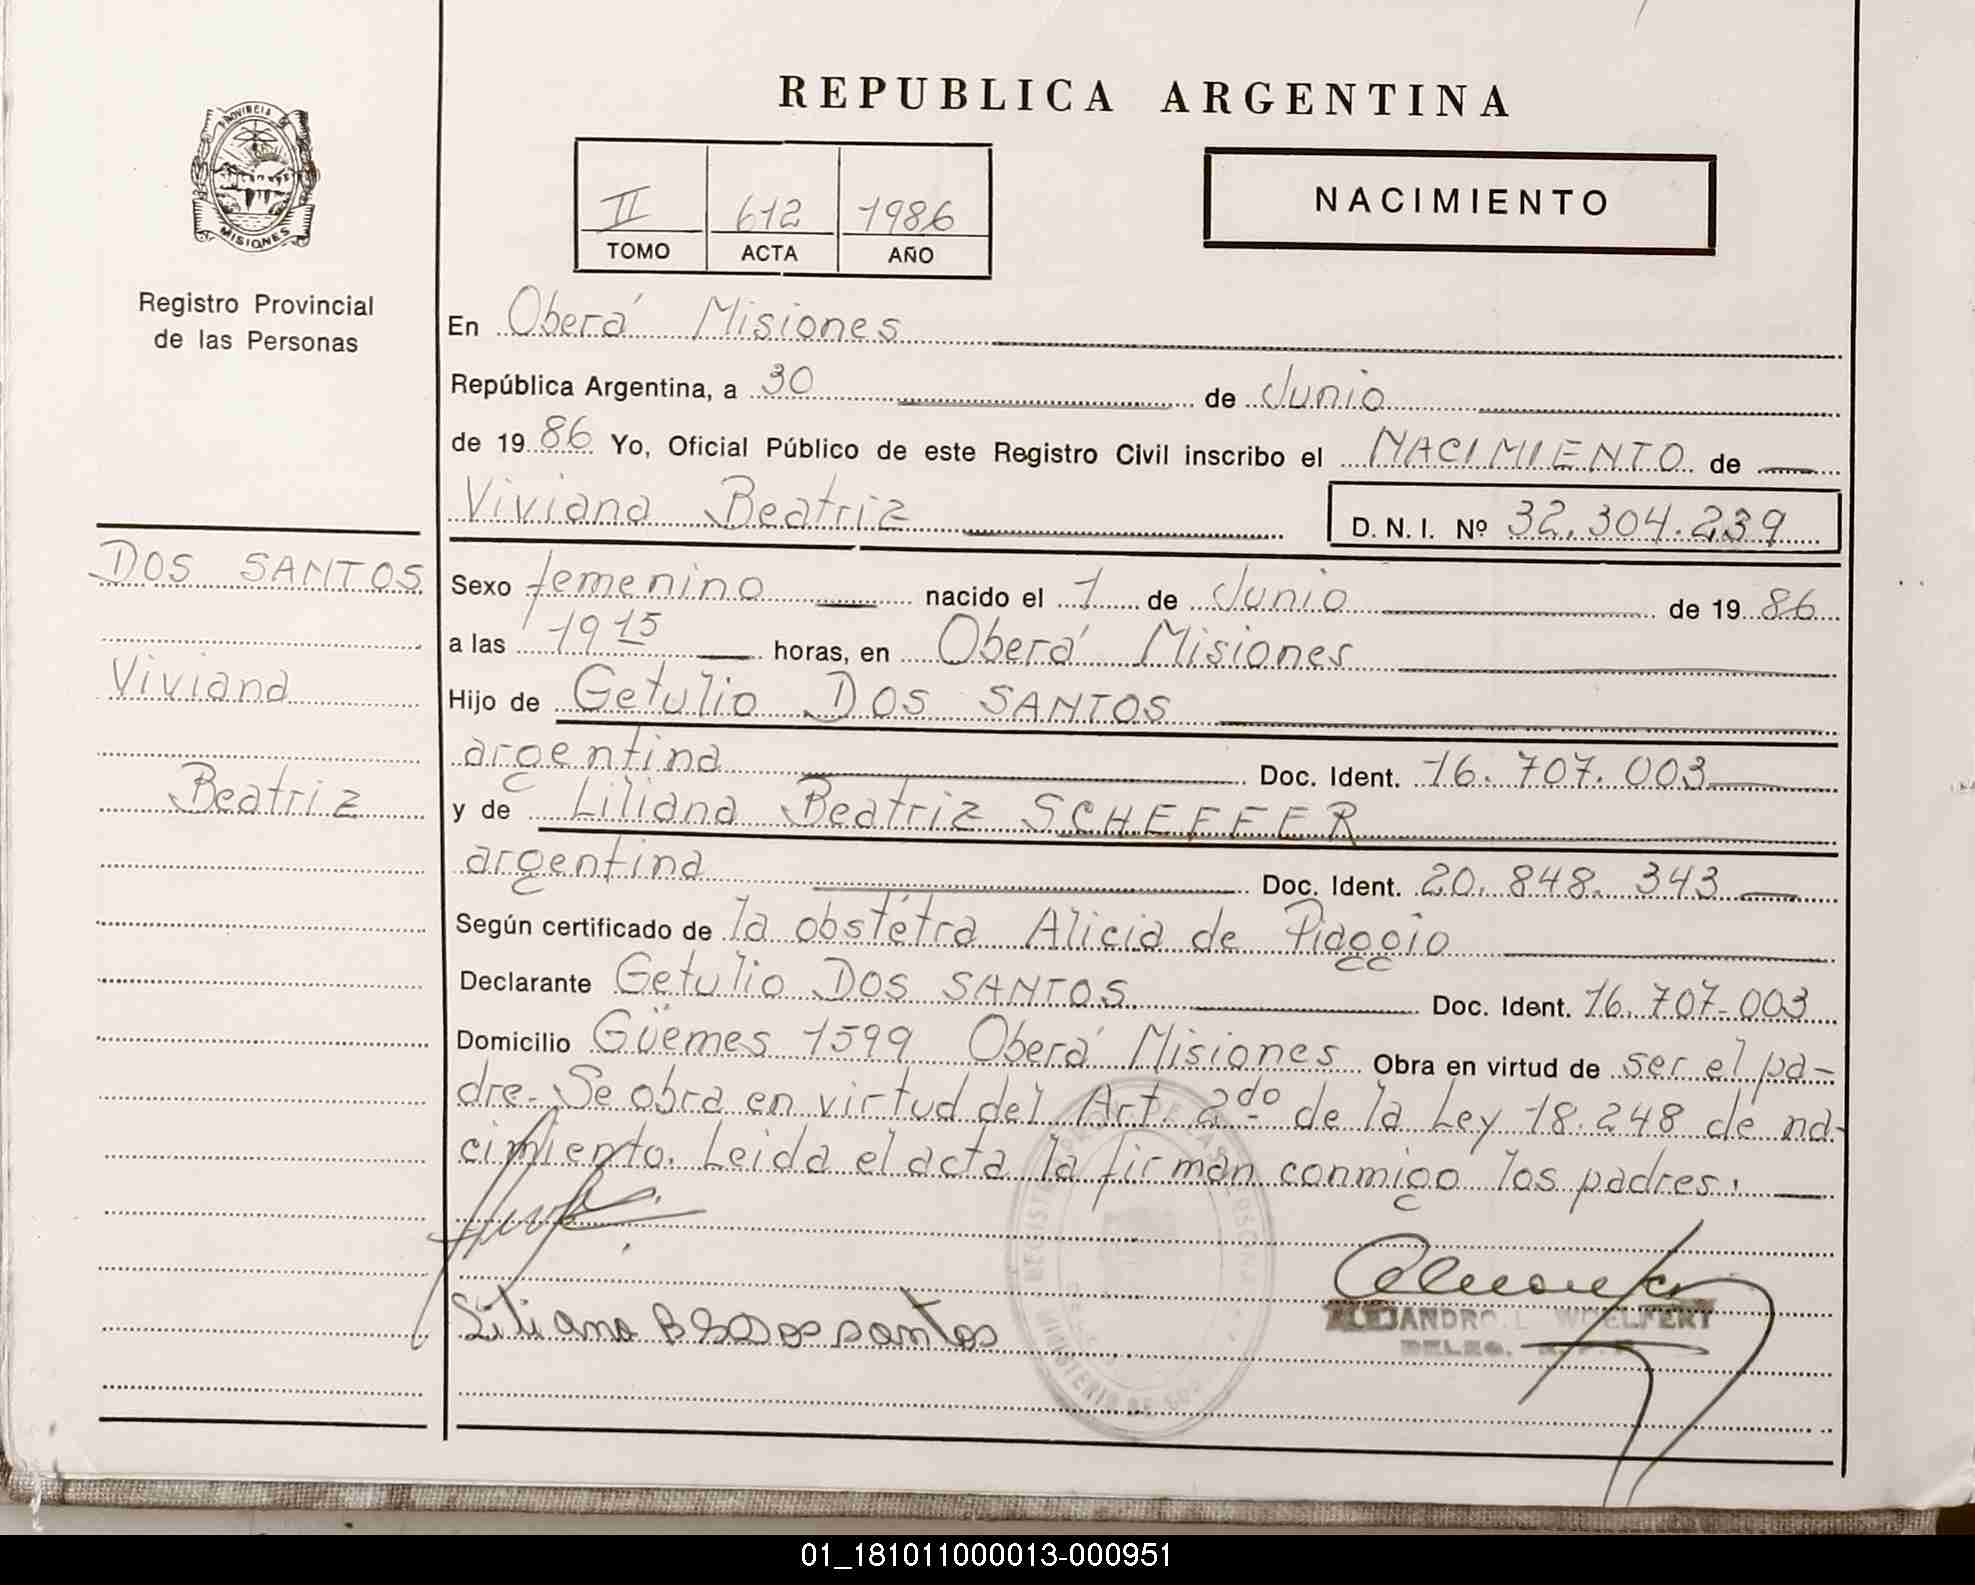 REPUBLICA ARGENTINA
PROVINCIA DE
MISIONES
II 612 1986
TOMO ACTA AÑO
NACIMIENTO
Registro Provincial
de las Personas
En Oberá Misiones
República Argentina, a 30 de Junio
de 1986 Yo, Oficial Público de este Registro Civil inscribo el NACIMIENTO de
Viviana Beatriz D. N. I. Nº 32.304.239
DOS SANTOS
Viviana
Beatriz
Sexo femenino nacido el 1 de Junio de 1986
a las 19 15 horas, en Oberá Misiones
Hijo de Getulio DOS SANTOS
argentina Doc. Ident. 16.707.003
y de Liliana Beatriz SCHEFFER
argentina Doc. Ident. 20.848.343
Según certificado de la obstétra Alicia de Piaggio
Declarante Getulio DOS SANTOS Doc. Ident. 16.707.003
Domicilio Güemes 1599 Oberá Misiones Obra en virtud de ser el pa-
dre. Se obra en virtud del Art. 2do de la Ley 18.248 de na-
cimiento. Leida el acta la firman conmigo los padres.
Liliana B S Dos santos
ALEJANDRO L. WOELFERT
DELEG.
01_181011000013-000951